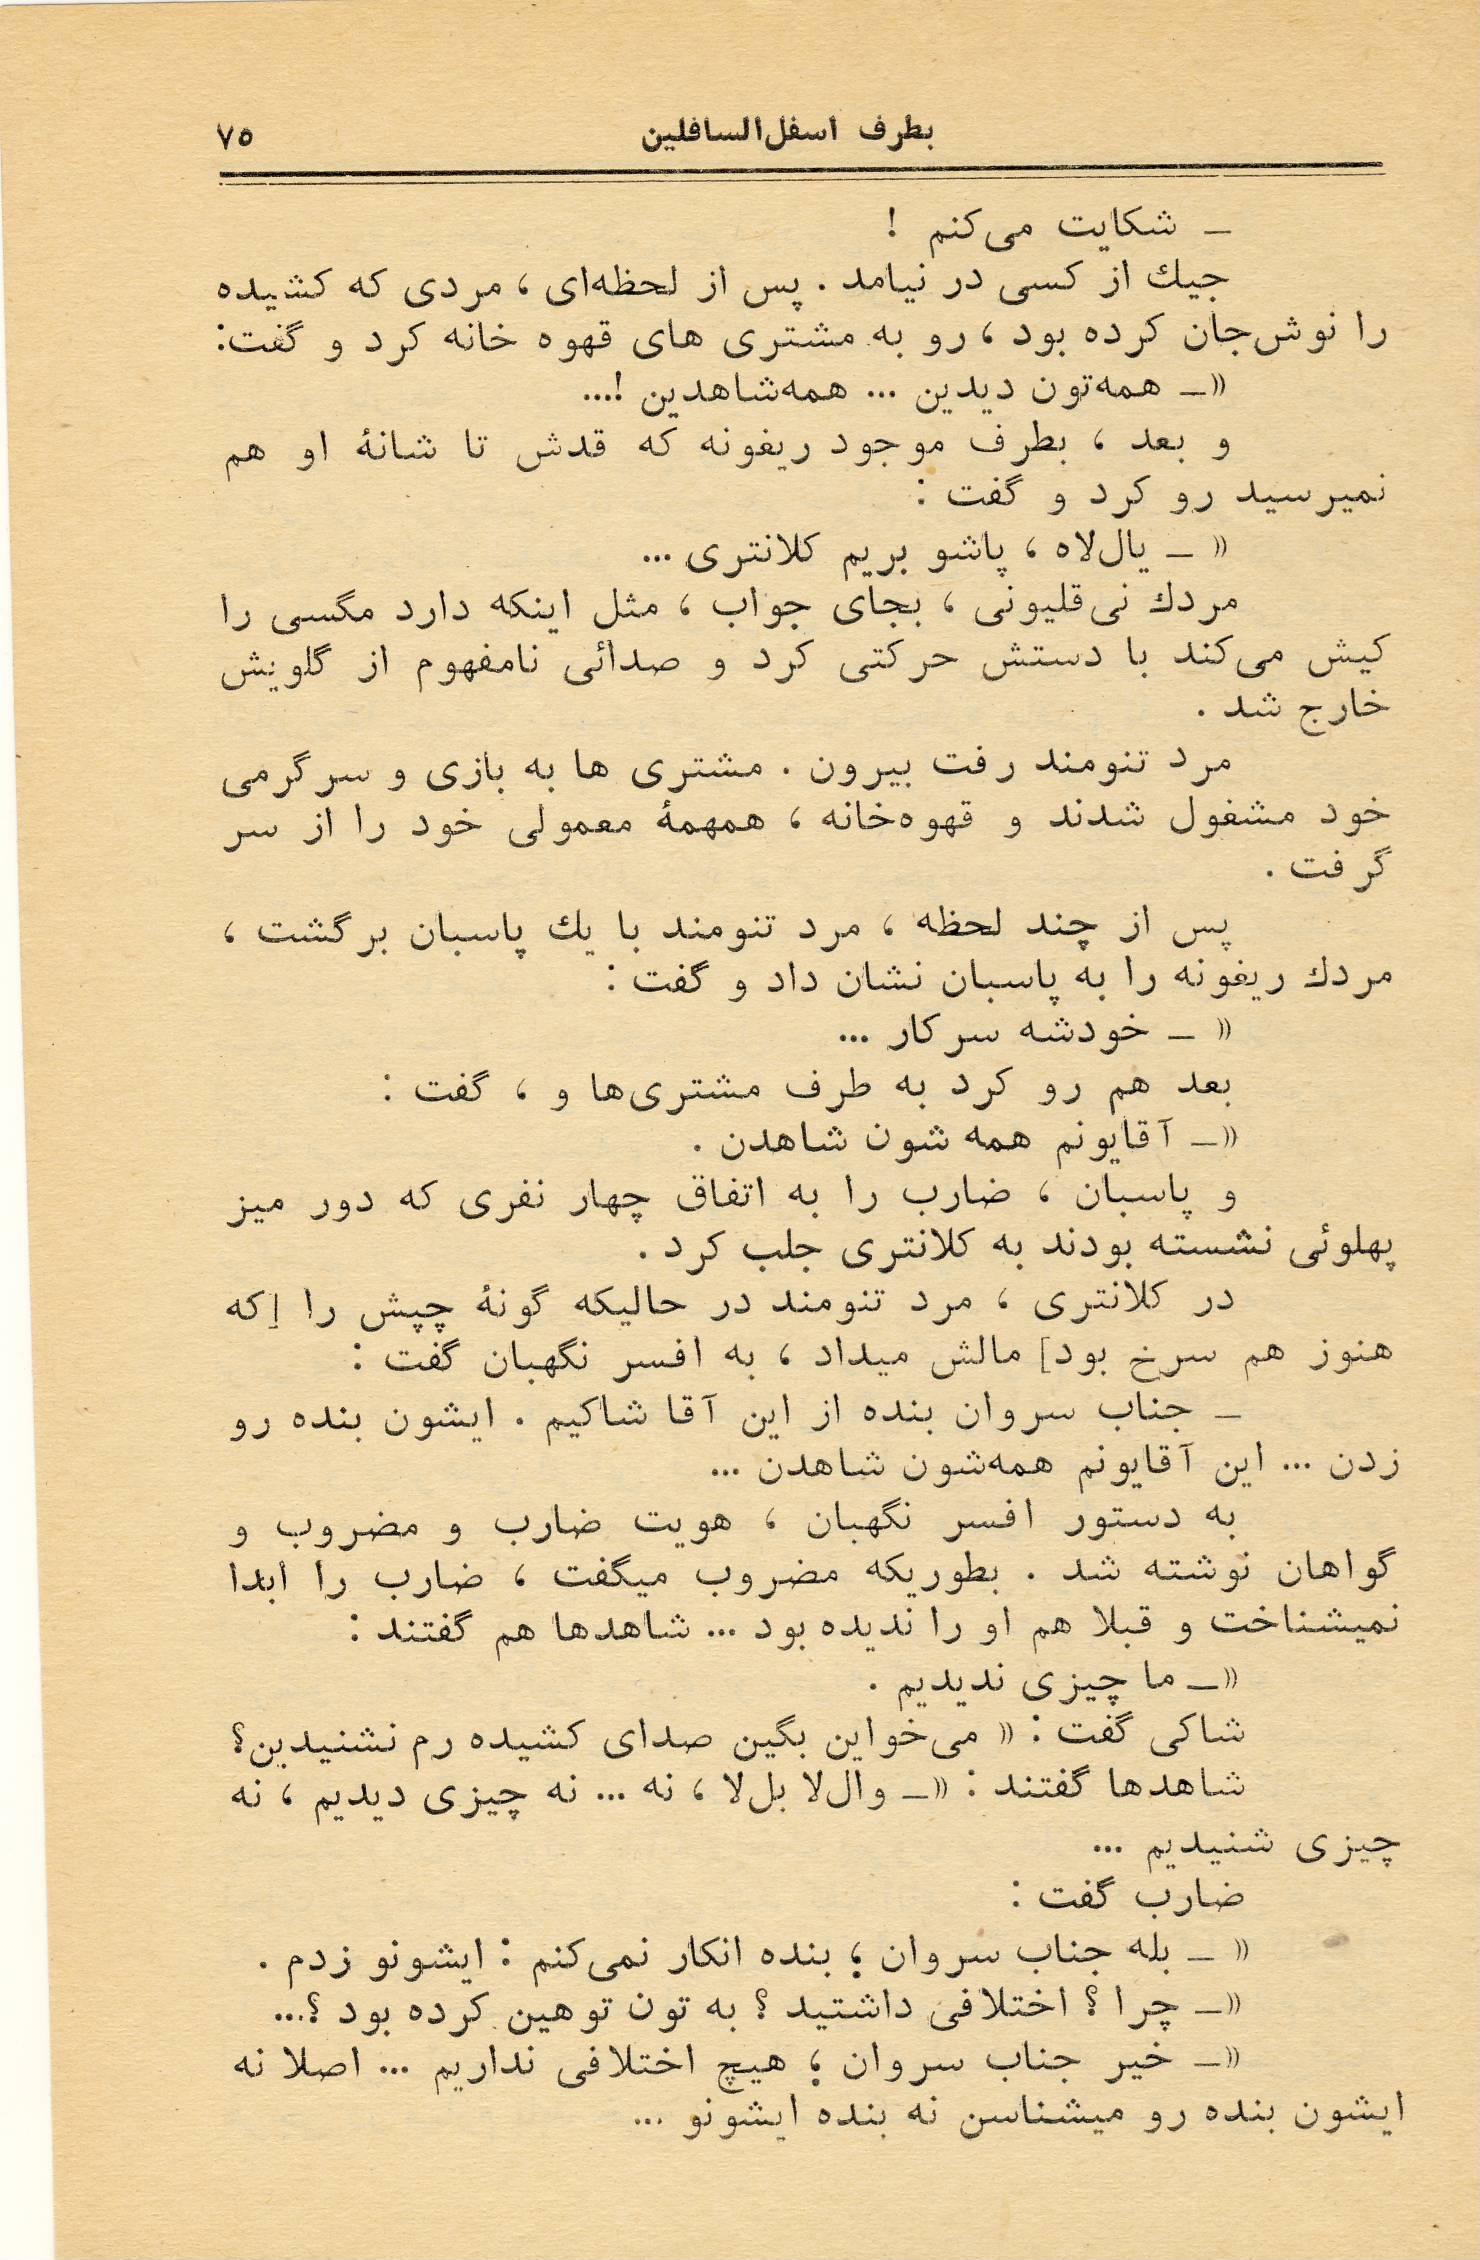 بطرف اسفل‌السافلین ۷۵
ـ شکایت می‌کنم !
جیك از کسی در نیامد . پس از لحظه‌ای ، مردی که کشیده
را نوش‌جان کرده بود ، رو به مشتری های قهوه خانه کرد و گفت:
«ـ همه‌تون دیدین ... همه‌شاهدین !...
و بعد ، بطرف موجود ریغونه که قدش تا شانهٔ او هم
نمیرسید رو کرد و گفت :
« ـ یال‌لاه ، پاشو بریم کلانتری ...
مردك نی‌قلیونی ، بجای جواب ، مثل اینکه دارد مگسی را
کیش می‌کند با دستش حرکتی کرد و صدائی نامفهوم از گلویش
خارج شد .
مرد تنومند رفت بیرون . مشتری ها به بازی و سرگرمی
خود مشغول شدند و قهوه‌خانه ، همهمهٔ معمولی خود را از سر
گرفت .
پس از چند لحظه ، مرد تنومند با یك پاسبان برگشت ،
مردك ریغونه را به پاسبان نشان داد و گفت :
« ـ خودشه سرکار ...
بعد هم رو کرد به طرف مشتری‌ها و ، گفت :
«ـ آقایونم همه شون شاهدن .
و پاسبان ، ضارب را به اتفاق چهار نفری که دور میز
پهلوئی نشسته بودند به کلانتری جلب کرد .
در کلانتری ، مرد تنومند در حالیکه گونهٔ چپش را [که
هنوز هم سرخ بود] مالش میداد ، به افسر نگهبان گفت :
ـ جناب سروان بنده از این آقا شاکیم . ایشون بنده رو
زدن ... این آقایونم همه‌شون شاهدن ...
به دستور افسر نگهبان ، هویت ضارب و مضروب و
گواهان نوشته شد . بطوریکه مضروب میگفت ، ضارب را ابدا
نمیشناخت و قبلا هم او را ندیده بود ... شاهدها هم گفتند :
«ـ ما چیزی ندیدیم .
شاکی گفت : « می‌خواین بگین صدای کشیده رم نشنیدین؟
شاهدها گفتند : «ـ وال‌لا بل‌لا ، نه ... نه چیزی دیدیم ، نه
چیزی شنیدیم ...
ضارب گفت :
« ـ بله جناب سروان ؛ بنده انکار نمی‌کنم : ایشونو زدم .
«ـ چرا ؟ اختلافی داشتید ؟ به تون توهین کرده بود ؟...
«ـ خیر جناب سروان ؛ هیچ اختلافی نداریم ... اصلا نه
ایشون بنده رو میشناسن نه بنده ایشونو ...